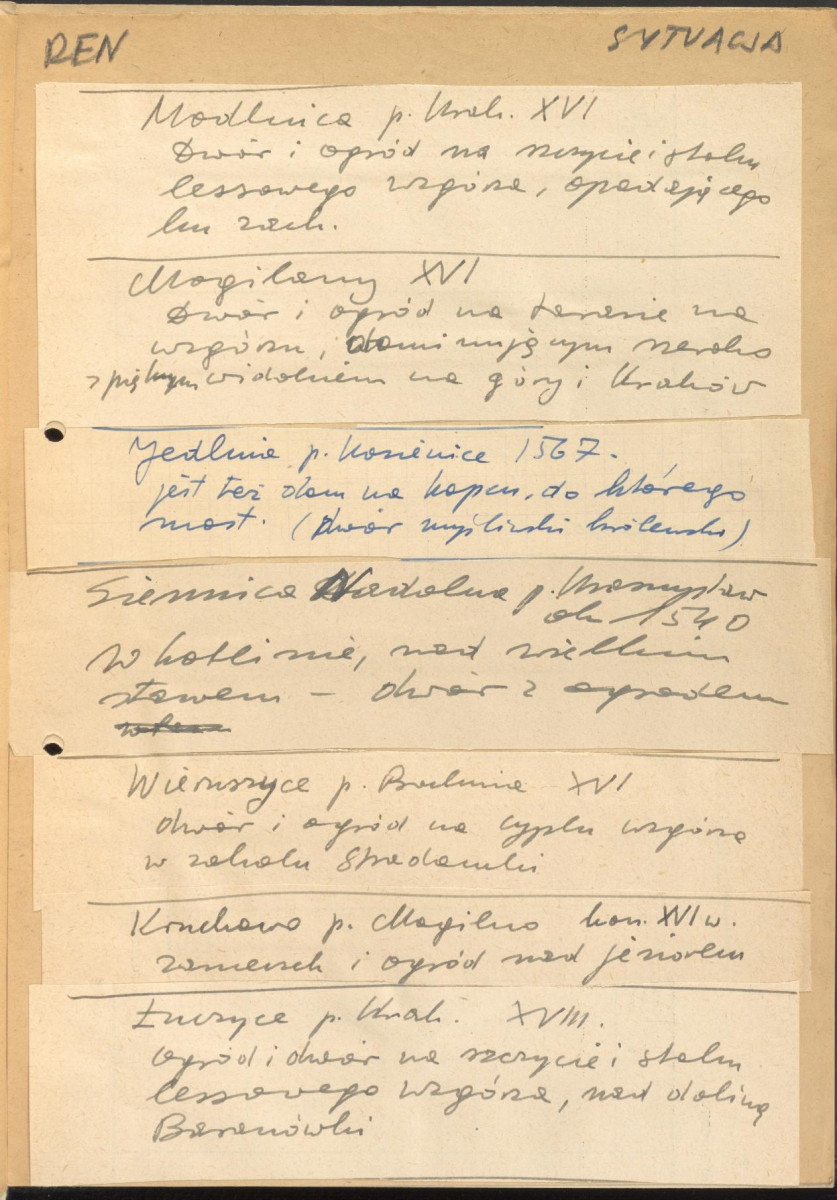 REN
SYTUACJA
Modlnica p. Krak. XVI
Dwór i ogród na szczycie i stoku
lessowego wzgórza, opadającego
ku zach.
Mogilany XVI
Dwór i ogród na tarasie na
wzgórzu, dominującym szeroko
z pięknym widokiem na góry i Kraków
Jedlnia p. Kozienice 1567.
jest też dom na kopcu, do którego
most. (dwór myśliwski królewski)
Siennica Nadolna p. Krasnystaw
ok 1540
W kotlinie, nad wielkim
stawem – dwór z ogrodem
Wieruszyce p. Bochnia XVI
dwór i ogród na cyplu wzgórza
w zakolu Stradomki
Kruchowo p. Mogilno kon. XVI w.
zameczek i ogród nad jeziorem
Łuczyce p. Krak. XVIII.
Ogród i dwór na szczycie i stoku
lessowego wzgórza, nad doliną
Baranówki